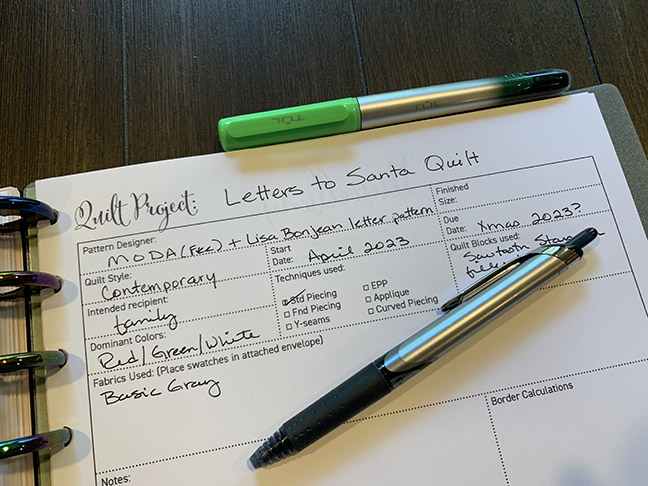 TUL
TUL
Quilt Project: Letters to Santa Quilt
Pattern Designer: MODA (Free) + Lisa Bonjean letter pattern
Finished Size:
Quilt Style: Contemporary
Start Date: April 2023
Due Date: Xmas 2023?
Intended recipient: family
Techniques used:
Std Piecing
EPP
Fnd Piecing
Applique
Y-seams
Curved Piecing
Quilt Blocks used:
Sawtooth
Dominant Colors: Red/Green/White
Fabrics Used: (Place swatches in attached envelope)
Basic Gray
Border Calculations
Notes: